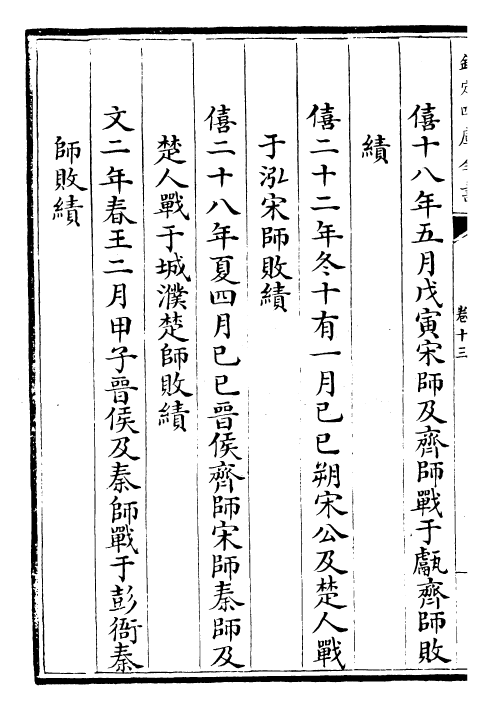 欽定四庫全書
卷十三
僖十八年五月戊寅宋師及齊師戰于甗齊師敗
績
僖二十二年冬十有一月己巳朔宋公及楚人戰
于泓宋師敗績
僖二十八年夏四月己巳晉侯齊師宋師秦師及
楚人戰于城濮楚師敗績
文二年春王二月甲子晉侯及秦師戰于彭衙秦
師敗績